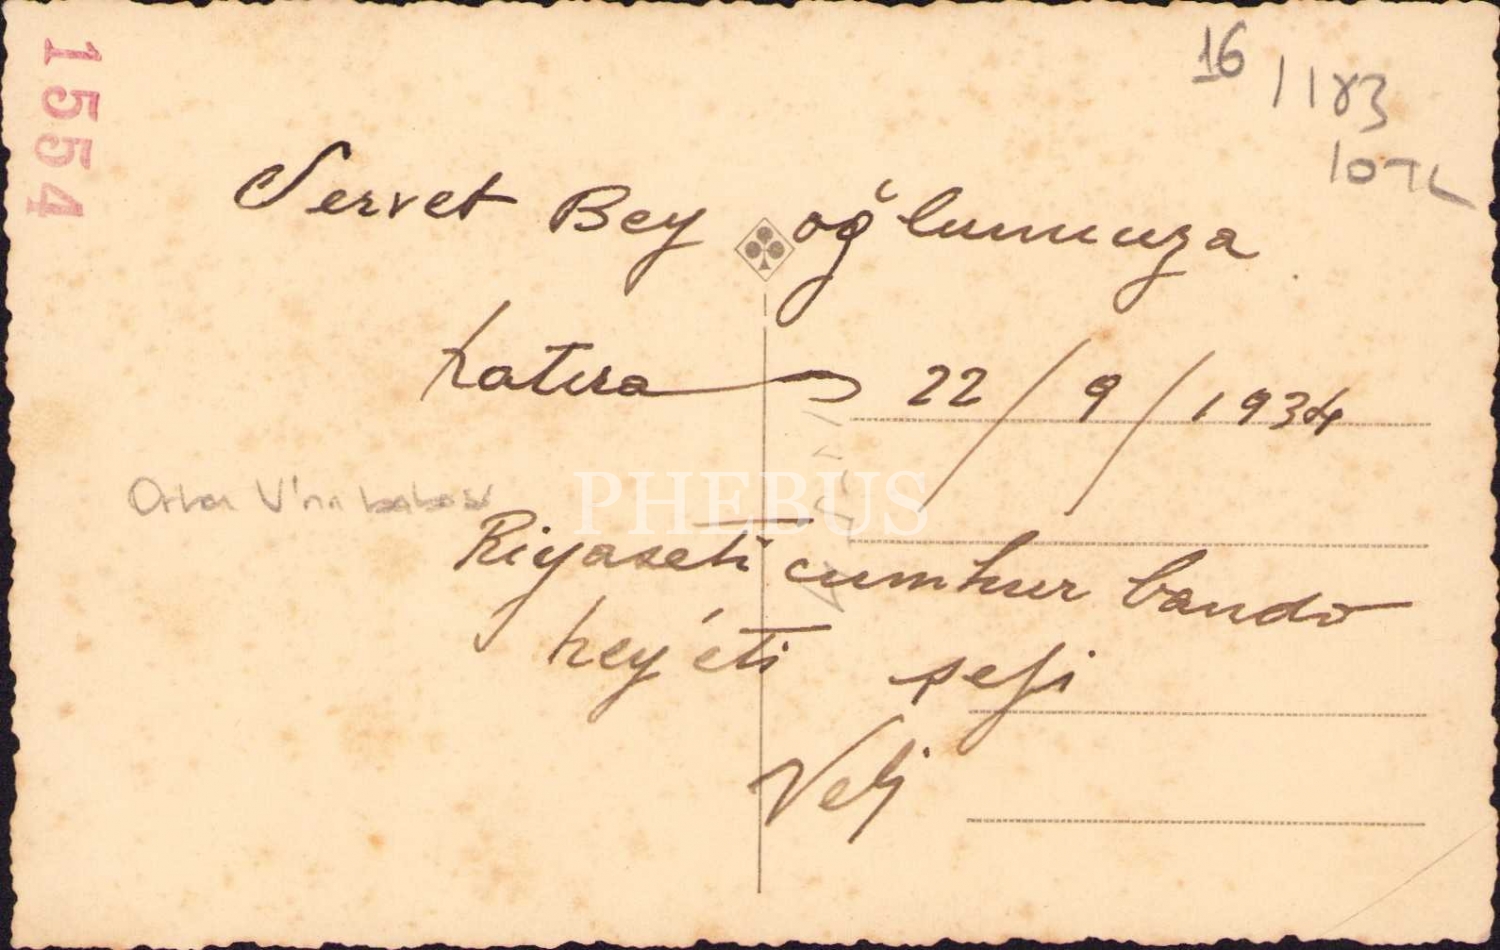 1554
16
/ 183
10TL
Servet Bey oğlumuza
hatıra 22/9/1934
Orhan V'nın babası
PHEBUS
Riyaseti cumhur bando
hey'eti şefi
Veli